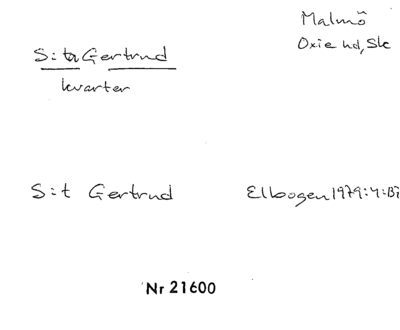 Malmö
Oxie hd, Sk
S:ta Gertrud
kvarter
S:t Gertrud
Elbogen 1979:4:
Nr 21600